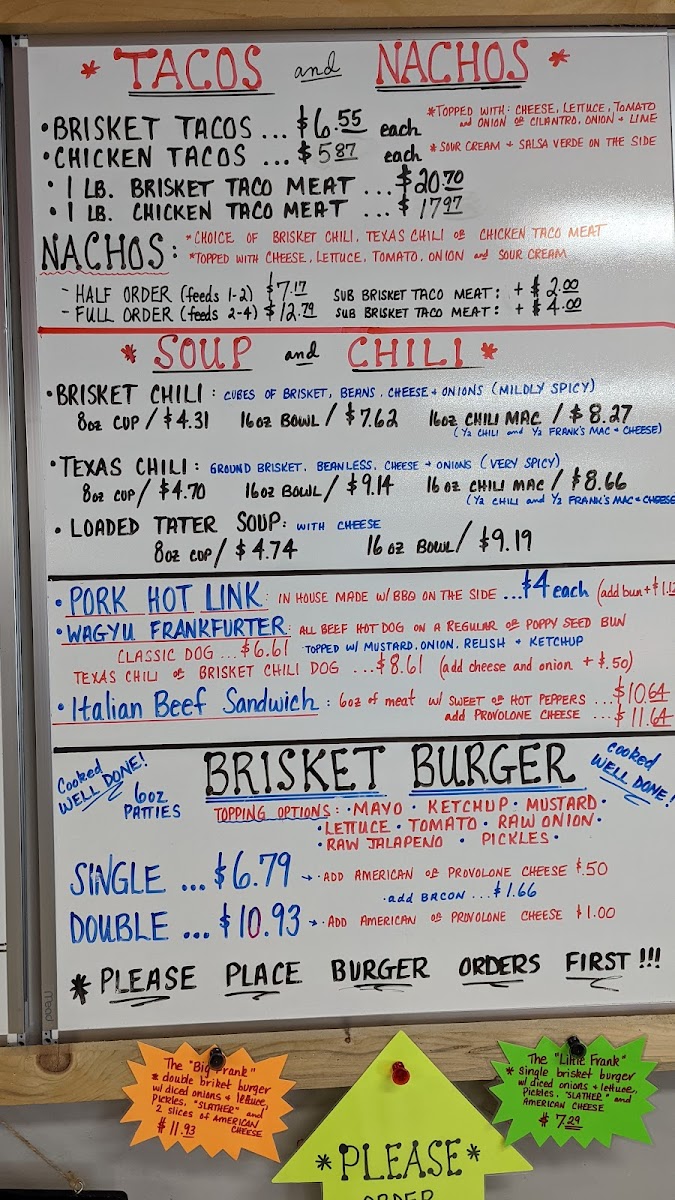 * TACOS and NACHOS *
• BRISKET TACOS ... $6.55 each
• CHICKEN TACOS ... $5.87 each
*TOPPED WITH: CHEESE, LETTUCE, TOMATO
and ONION or CILANTRO, ONION + LIME
* SOUR CREAM + SALSA VERDE ON THE SIDE
• 1 LB. BRISKET TACO MEAT ... $20.70
• 1 LB. CHICKEN TACO MEAT ... $17.97
NACHOS: *CHOICE OF BRISKET CHILI, TEXAS CHILI or CHICKEN TACO MEAT
*TOPPED WITH CHEESE, LETTUCE, TOMATO, ONION and SOUR CREAM
- HALF ORDER (feeds 1-2) $7.17 SUB BRISKET TACO MEAT: + $2.00
- FULL ORDER (feeds 2-4) $12.79 SUB BRISKET TACO MEAT: + $4.00
* SOUP and CHILI *
• BRISKET CHILI: CUBES OF BRISKET, BEANS, CHEESE + ONIONS (MILDLY SPICY)
8oz CUP / $4.31 16oz BOWL / $7.62 16oz CHILI MAC / $8.27
(1/2 CHILI and 1/2 FRANK'S MAC + CHEESE)
• TEXAS CHILI: GROUND BRISKET, BEANLESS, CHEESE + ONIONS (VERY SPICY)
8oz CUP / $4.70 16oz BOWL / $9.14 16 oz CHILI MAC / $8.66
(1/2 CHILI and 1/2 FRANK'S MAC + CHEESE
• LOADED TATER SOUP: WITH CHEESE
8oz CUP / $4.74 16 oz BOWL / $9.19
• PORK HOT LINK: IN HOUSE MADE W/ BBQ ON THE SIDE ... $4 each (add bun +
• WAGYU FRANKFURTER: ALL BEEF HOT DOG ON A REGULAR or POPPY SEED BUN
CLASSIC DOG ... $6.61 TOPPED W/ MUSTARD, ONION, RELISH + KETCHUP
TEXAS CHILI or BRISKET CHILI DOG ... $8.61 (add cheese and onion + $.50)
• Italian Beef Sandwich: 6oz of meat w/ SWEET or HOT PEPPERS ... $10.64
add PROVOLONE CHEESE ... $11.64
Cooked
WELL DONE!
BRISKET BURGER
Cooked
WELL DONE!
6oz
PATTIES
TOPPING OPTIONS: • MAYO • KETCHUP • MUSTARD •
• LETTUCE • TOMATO • RAW ONION •
• RAW JALAPENO • PICKLES •
SINGLE ... $6.79 → • ADD AMERICAN or PROVOLONE CHEESE $.50
• add BACON ... $1.66
DOUBLE ... $10.93 → • ADD AMERICAN or PROVOLONE CHEESE $1.00
* PLEASE PLACE BURGER ORDERS FIRST !!!
Mead
The "Big Frank"
* double briket burger
w/ diced onions + lettuce,
Pickles, "SLATHER" and
2 slices of AMERICAN
CHEESE
$11.93
*PLEASE*
ORDER
The "Little Frank"
* Single brisket burger
w/ diced onions + lettuce,
Pickles, "SLATHER" and
AMERICAN CHEESE
$7.29